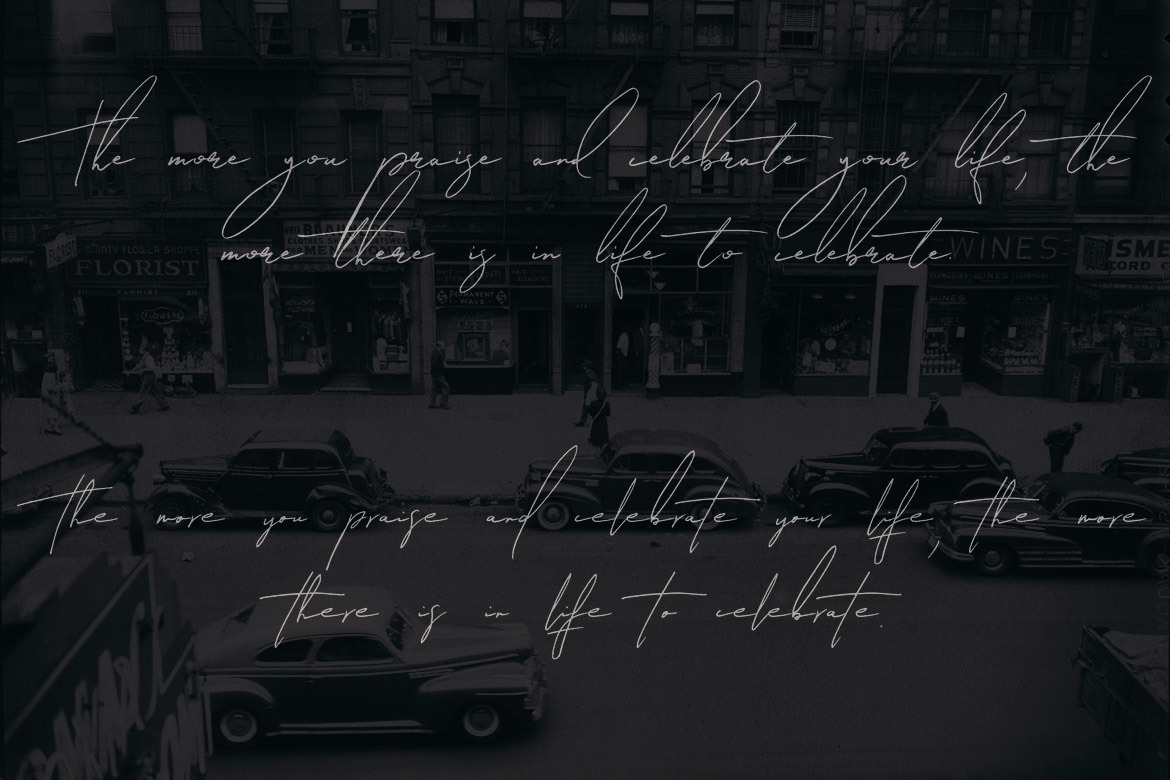 The more you praise and celebrate your life, the
more there is in life to celebrate.
FLORIST
DAINTY FLOWER SHOPPE
FLORIST
FLORIST
FLOWERS
CLOTHES
MEN
PERMANENT
WAVE
WINES
WINES
RECORD
The more you praise and celebrate your life, the more
there is in life to celebrate.